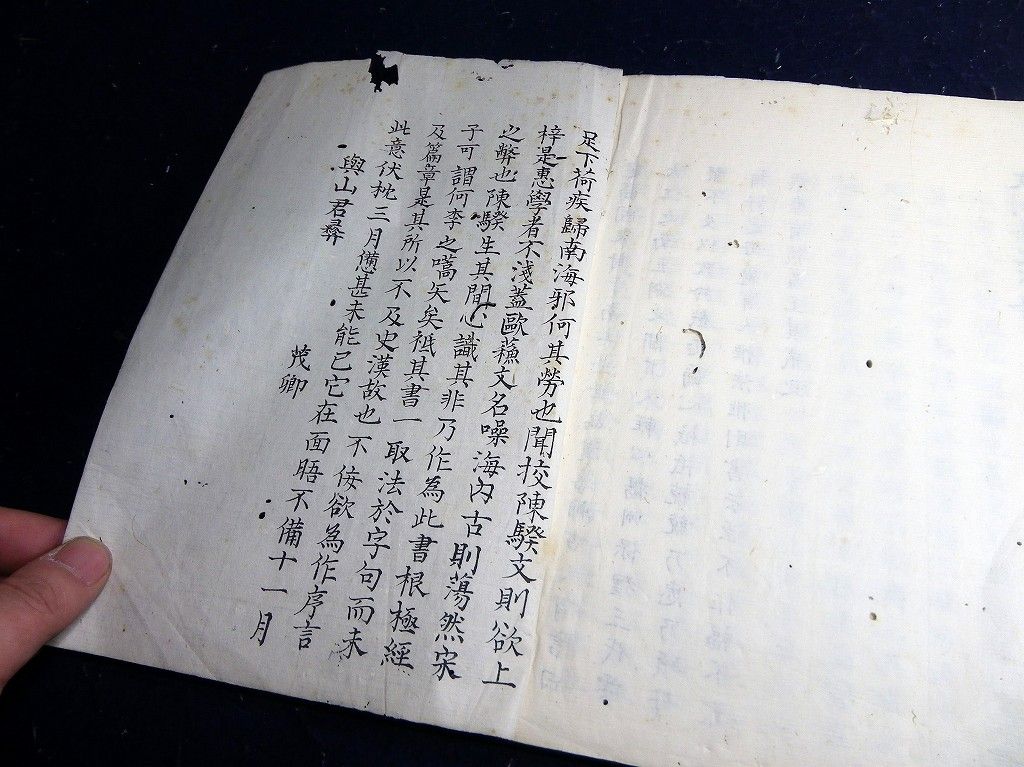 足下荷疾歸南海邪何其勞也聞挍陳騤文則欲上
梓是惠學者不淺蓋歐蘓文名噪海內古則蕩然宋
之弊也陳騤生其間心識其非乃作為此書根極經
子可謂何李之嚆矢矣祗其書一取法於字句而未
及篇章是其所以不及史漢故也不佞欲為作序言
此意伏枕三月憊甚未能已它在面晤不備十一月
茂卿
與山君彝